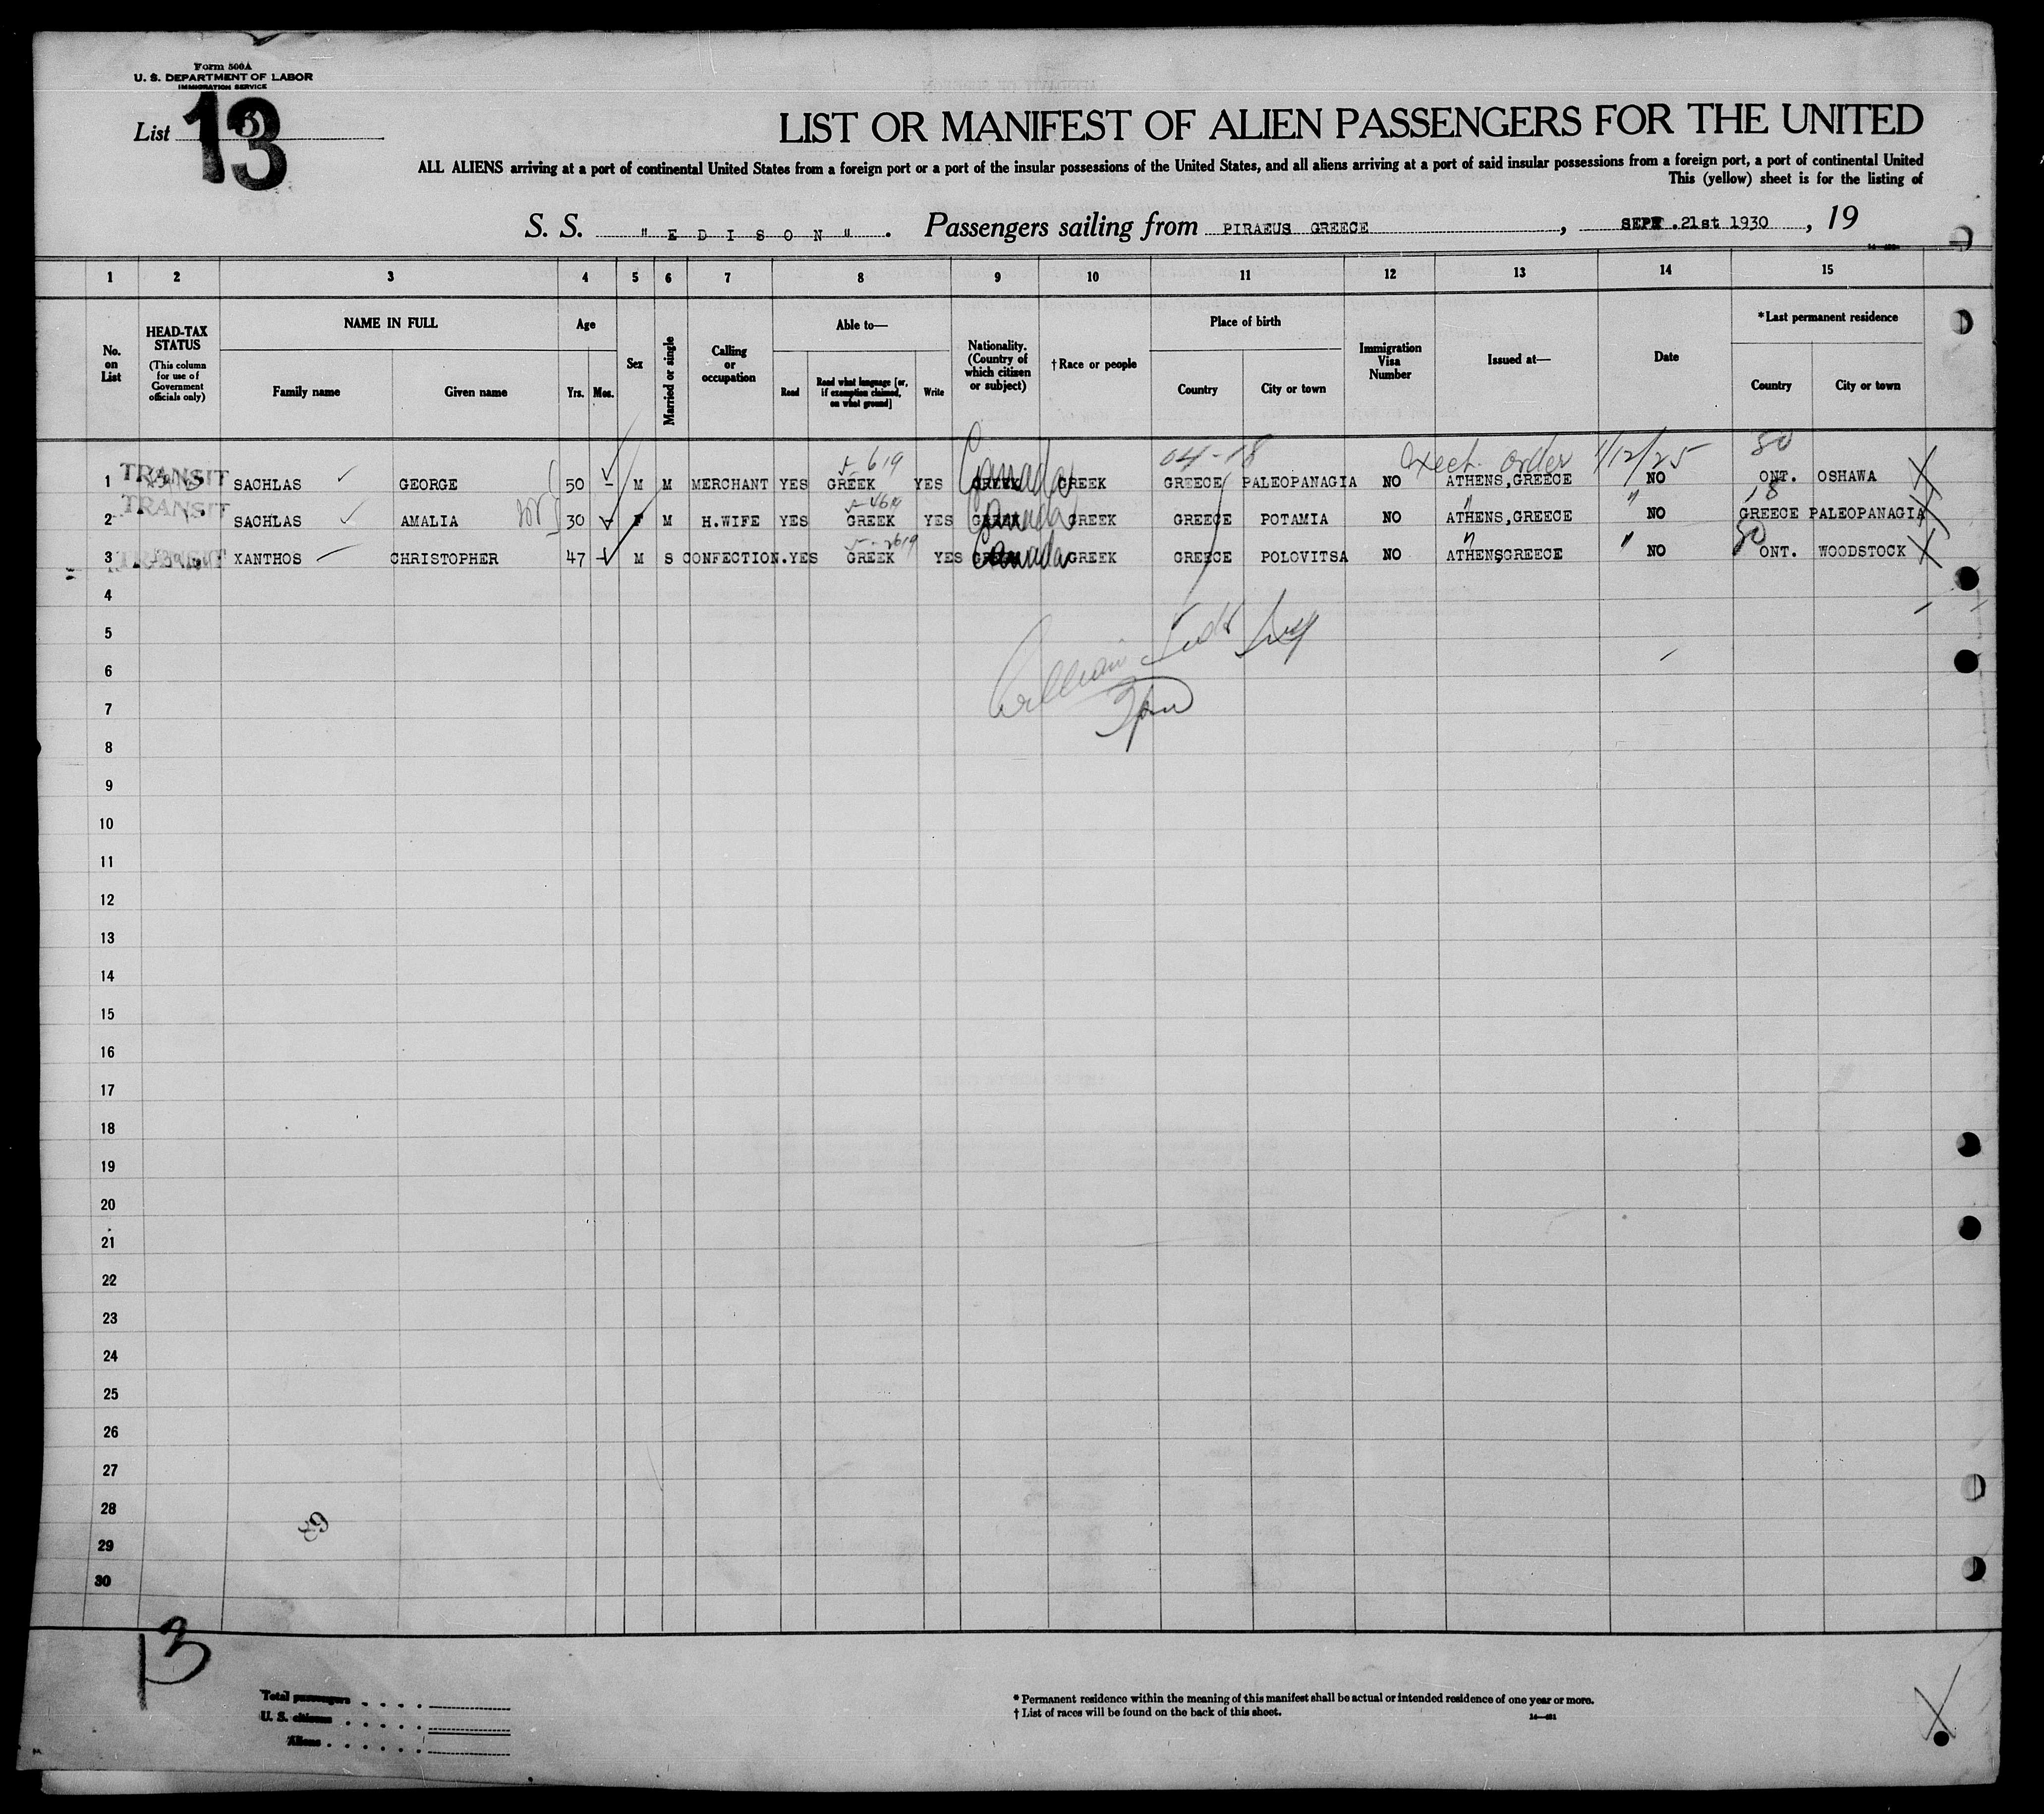 Form 500A
U. S. DEPARTMENT OF LABOR
IMMIGRATION SERVICE
List 13
LIST OR MANIFEST OF ALIEN PASSENGERS FOR THE UNITED
ALL ALIENS arriving at a port of continental United States from a foreign port or a port of the insular possessions of the United States, and all aliens arriving at a port of said insular possessions from a foreign port, a port of continental United
This (yellow) sheet is for the listing of
S. S. " E D I S O N " . Passengers sailing from PIRAEUS GREECE , SEPT .21st 1930 , 19
1 2 3 4 5 6 7 8 9 10 11 12 13 14 15
No. on List
HEAD-TAX STATUS
(This column for use of Government officials only)
NAME IN FULL
Family name Given name
Age
Yrs. Mos.
Sex
Married or single
Calling or occupation
Able to—
Read Read what language [or, if exemption claimed, on what ground] Write
Nationality. (Country of which citizen or subject)
†Race or people
Place of birth
Country City or town
Immigration Visa Number
Issued at—
Date
*Last permanent residence
Country City or town
5-619 04-18 Exect. order 1/12/25 80
1 TRANSIT SACHLAS GEORGE 50 - M M MERCHANT YES GREEK YES GREEK Canada GREEK GREECE PALEOPANAGIA NO ATHENS,GREECE NO ONT. OSHAWA X
2 TRANSIT SACHLAS AMALIA 30 - F M H.WIFE YES GREEK YES GREEK Canada GREEK GREECE POTAMIA NO ATHENS,GREECE " NO 18 GREECE PALEOPANAGIA X
3 TRANSIT XANTHOS CHRISTOPHER 47 - M S CONFECTION. YES GREEK YES GREEK Canada GREEK GREECE POLOVITSA NO ATHENS,GREECE " NO 80 ONT. WOODSTOCK X
4
5
6
7
8
9
10
11
12
13
14
15
16
17
18
19
20
21
22
23
24
25
26
27
28
29
30
13
Total passengers . . . .
U. S. citizens . . . . .
Aliens . . . . . .
* Permanent residence within the meaning of this manifest shall be actual or intended residence of one year or more.
† List of races will be found on the back of this sheet.
X